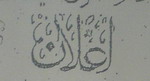 اعلان